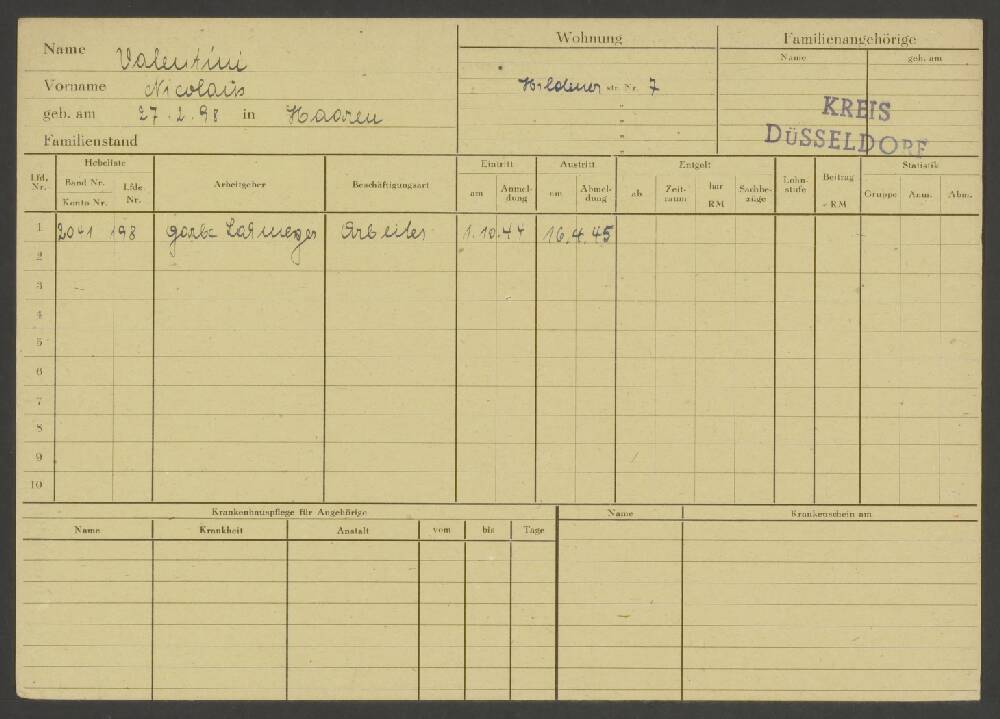 Name Valentini
Vorname Nicolaus
geb. am 27.2.98 in Haaren
Familienstand
Wohnung
Hildener str. Nr. 7
"
"
"
Familienangehörige
Name geb. am
KREIS
DÜSSELDORF
Lfd. Nr.
Hebeliste
Band Nr.
Konto Nr.
Lfde. Nr.
Arbeitgeber
Beschäftigungsart
Eintritt
am Anmeldung
Austritt
am Abmeldung
Entgelt
ab Zeitraum bar RM Sachbezüge
Lohnstufe
Beitrag RM
Statistik
Gruppe Anm. Abm.
1 2041 198 Arbeiter 1.10.44 16.4.45
2
3
4
5
6
7
8
9
10
Krankenhauspflege für Angehörige
Name Krankheit Anstalt vom bis Tage
Name Krankenschein am